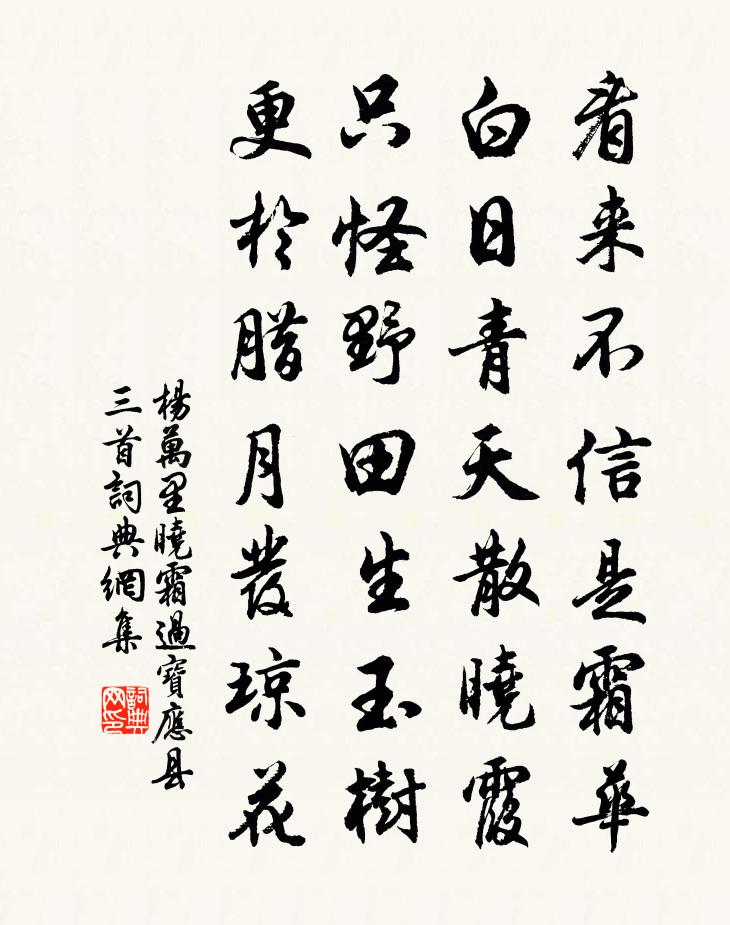 看来不信是霜華
白日青天散曉霞
只怪野田生玉樹
更於腊月發琼花
楊萬里曉霜過寶應县
三首詞典網集
詞典網印